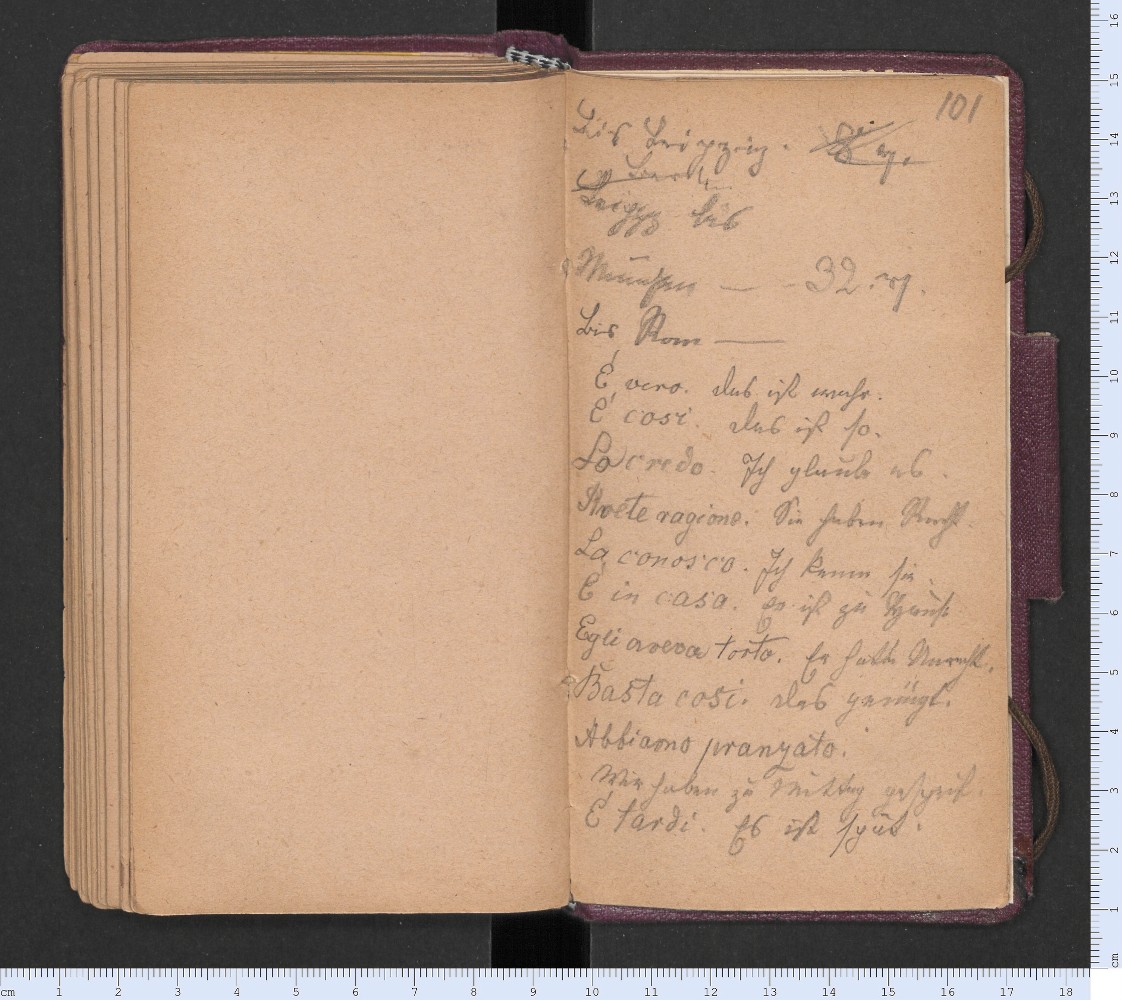 101
Bis Leipzig.
Leipzg bis
München — - 32. M.
bis Rom —
É vero. das ist wahr.
É cosi. das ist so.
Lo credo. Ich glaube es.
Avete ragione. Sie haben Recht.
La conosco. Ich kenne sie.
É in casa. er ist zu Hause
Egli aveva torto. Er hatte Unrecht.
Basta cosi. das genügt.
Abbiamo pranzato.
Wir haben zu Mittag gespeist.
É tardi. Es ist spät.